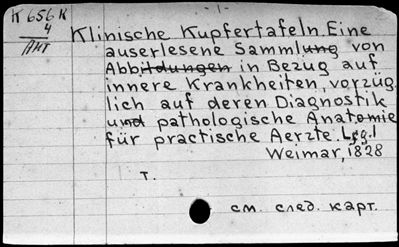 - 1 -
K 656 K
4
Акт
Klinische Kupfertafeln. Eine
auserlesene Sammlung von
Abbildungen in Bezug auf
innere Krankheiten, vorzüg
lich auf deren Diagnostik
und pathologische Anatomie
für practische Aerzte. Lfg. 1
Weimar, 1828
т.
см. след. карт.